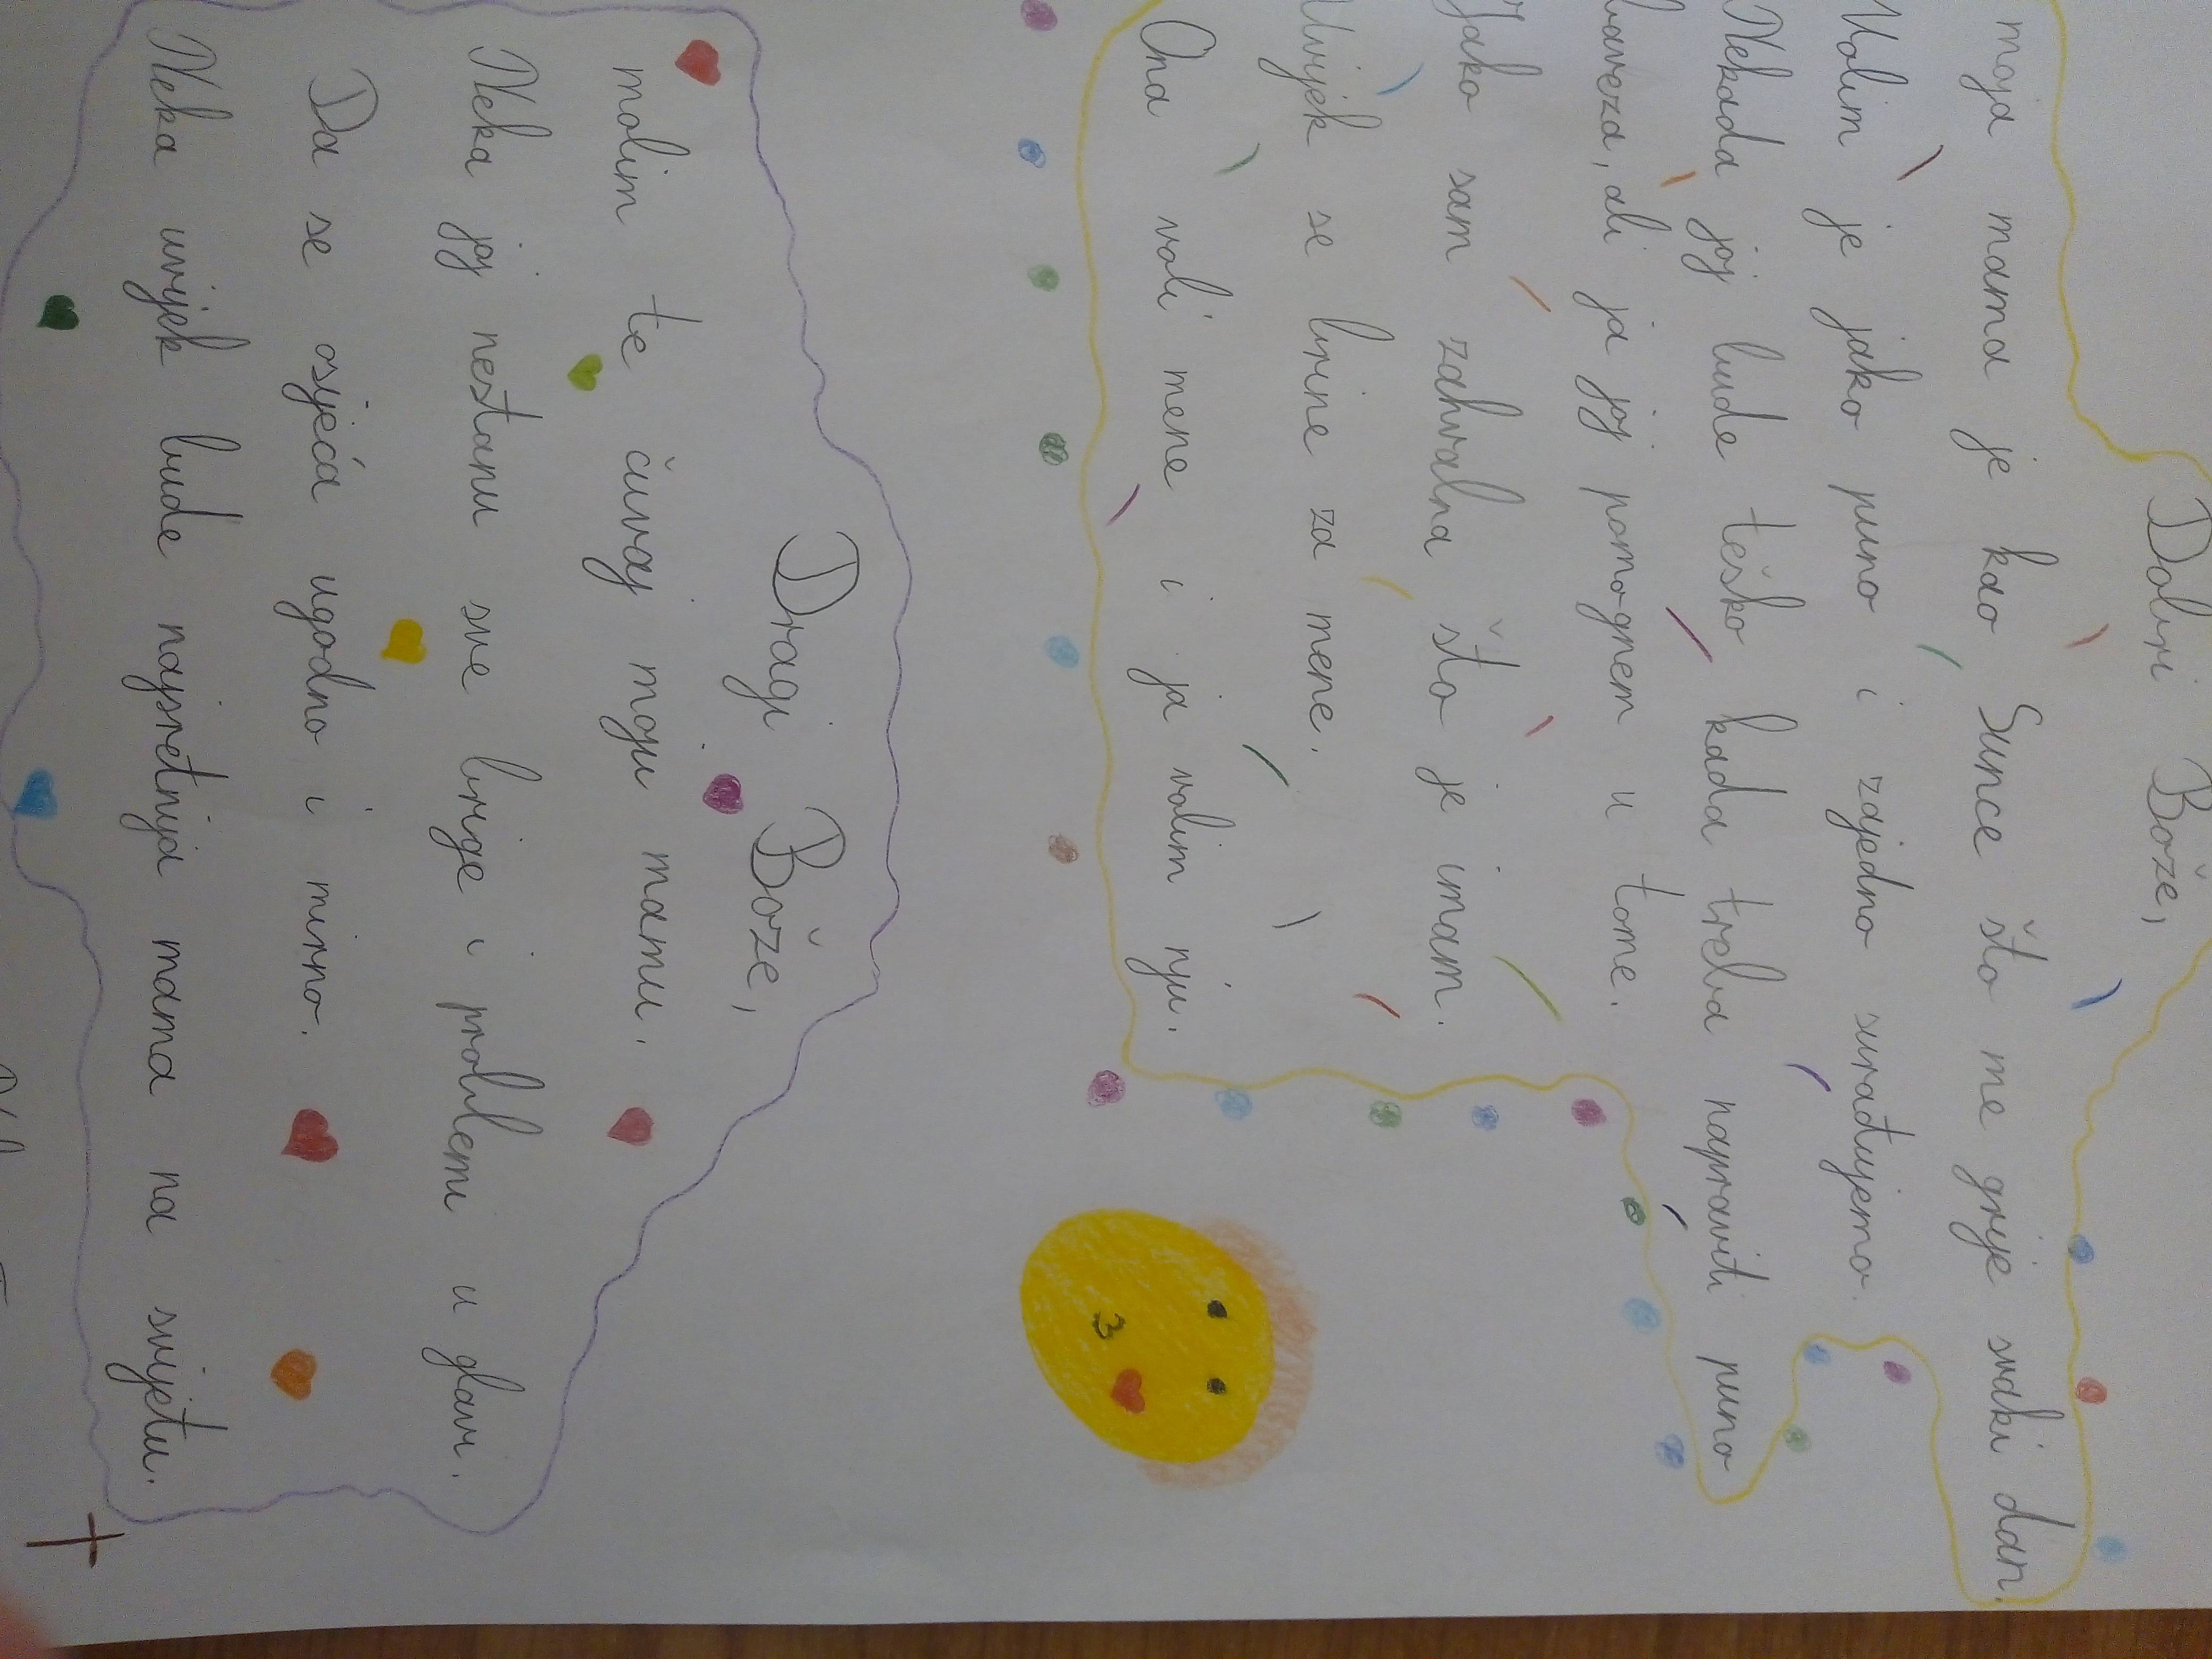 Dobri Bože,
moja mama je kao Sunce što me grije svaki dan.
Volim je jako puno i zajedno surađujemo.
Nekada joj bude teško kada treba napraviti puno
obaveza, ali ja joj pomognem u tome.
Jako sam zahvalna što je imam.
Uvijek se brine za mene.
Ona voli mene i ja volim nju.
Dragi Bože,
molim te čuvaj moju mamu.
Neka joj nestanu sve brige i problemi u glavi.
Da se osjeća ugodno i mirno.
Neka uvijek bude najsretnija mama na svijetu.